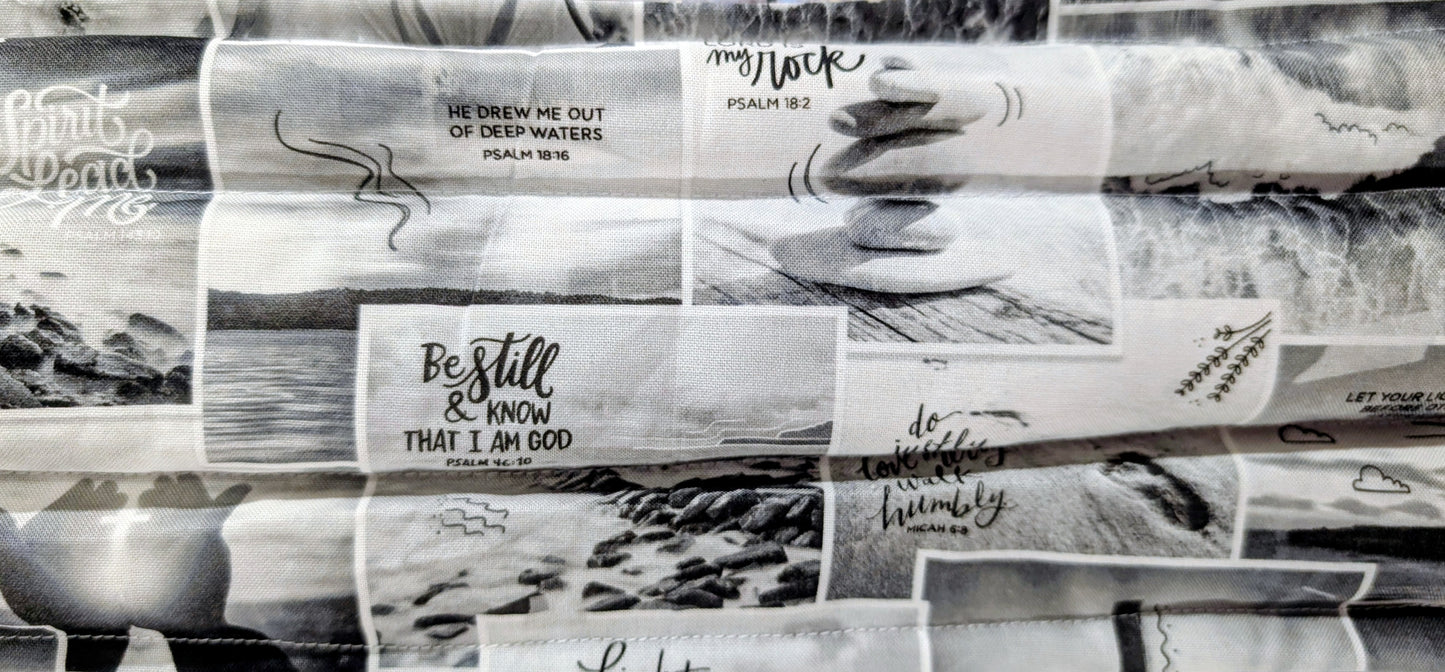 Spirit
Lead
Me
my rock
PSALM 18:2
HE DREW ME OUT
OF DEEP WATERS
PSALM 18:16
Be Still
& KNOW
THAT I AM GOD
PSALM 46:10
do
love
walk
humbly
MICAH 6:8
LET YOUR
BEFORE
Light